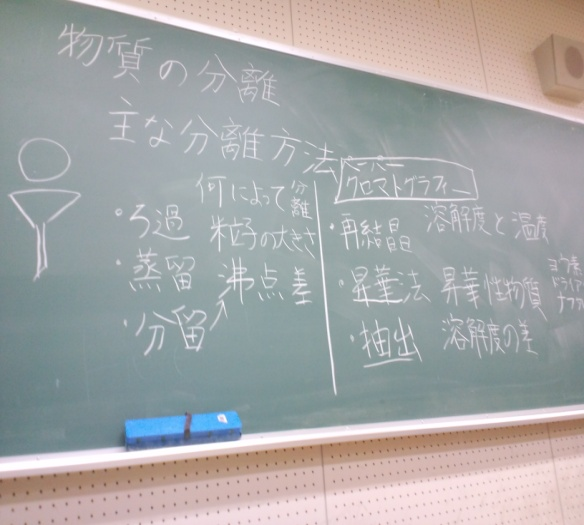 物質の分離
主な分離方法
何によって分離
・ろ過 粒子の大きさ
・蒸留 沸点差
・分留
ペーパー
クロマトグラフィー
・再結晶 溶解度と温度
・昇華法 昇華性物質
ヨウ素
ドライアイス
ナフタ
・抽出 溶解度の差